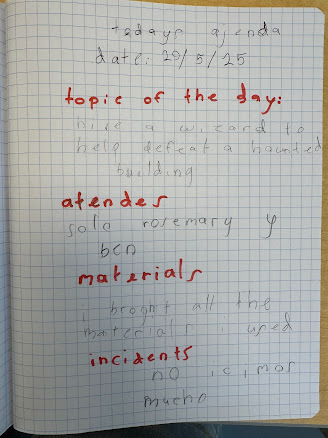 todays ajenda
date: 29/5/25
topic of the day:
hire a wizard to
help defeat a haunted
building
atendes
solo rosemary y
ben
materials
i broght all the
materials i used
incidents
no icimos
mucho